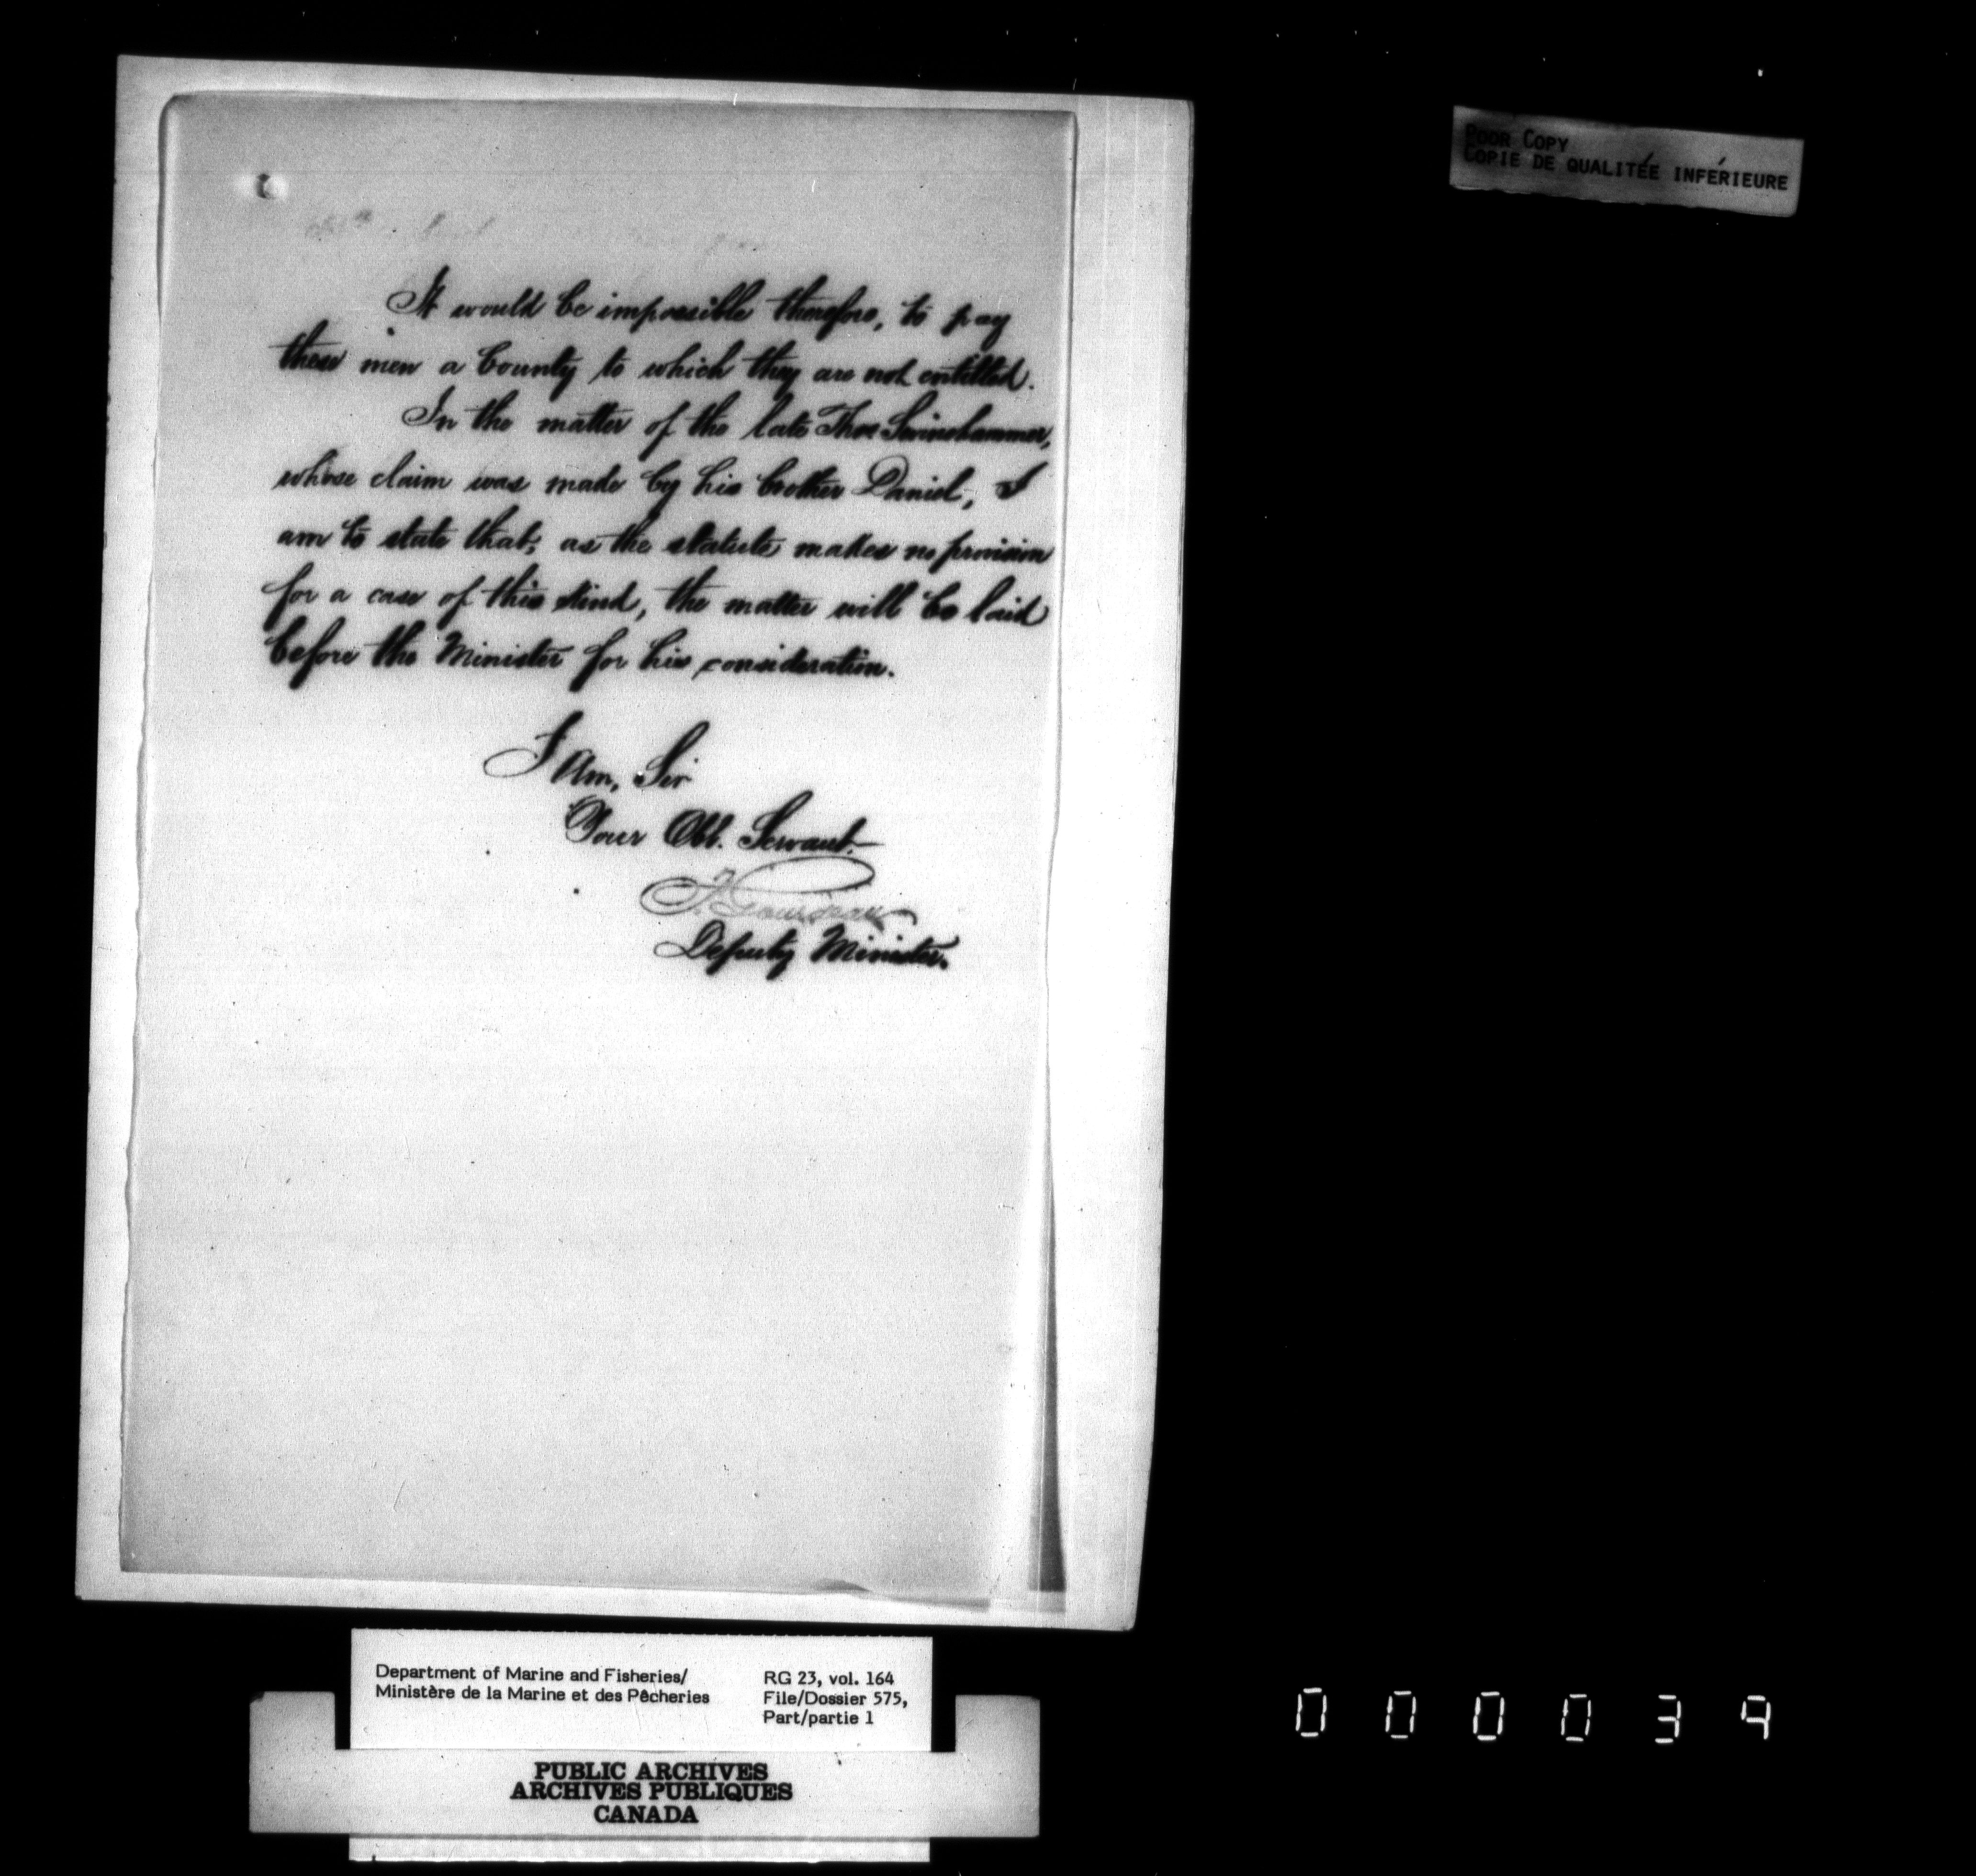 It would be impossible therefore, to pay
these men a bounty to which they are not entitled.
In the matter of the late Thos Swinehammer,
whose claim was made by his brother Daniel, I
am to state that, as the statute makes no provision
for a case of this kind, the matter will be laid
before the Minister for his consideration.
I Am, Sir
Your Obt. Servant.
F. Gourdeau
Deputy Minister.
POOR COPY
COPIE DE QUALITÉE INFÉRIEURE
Department of Marine and Fisheries/
Ministère de la Marine et des Pêcheries
RG 23, vol. 164
File/Dossier 575,
Part/partie 1
PUBLIC ARCHIVES
ARCHIVES PUBLIQUES
CANADA
000039